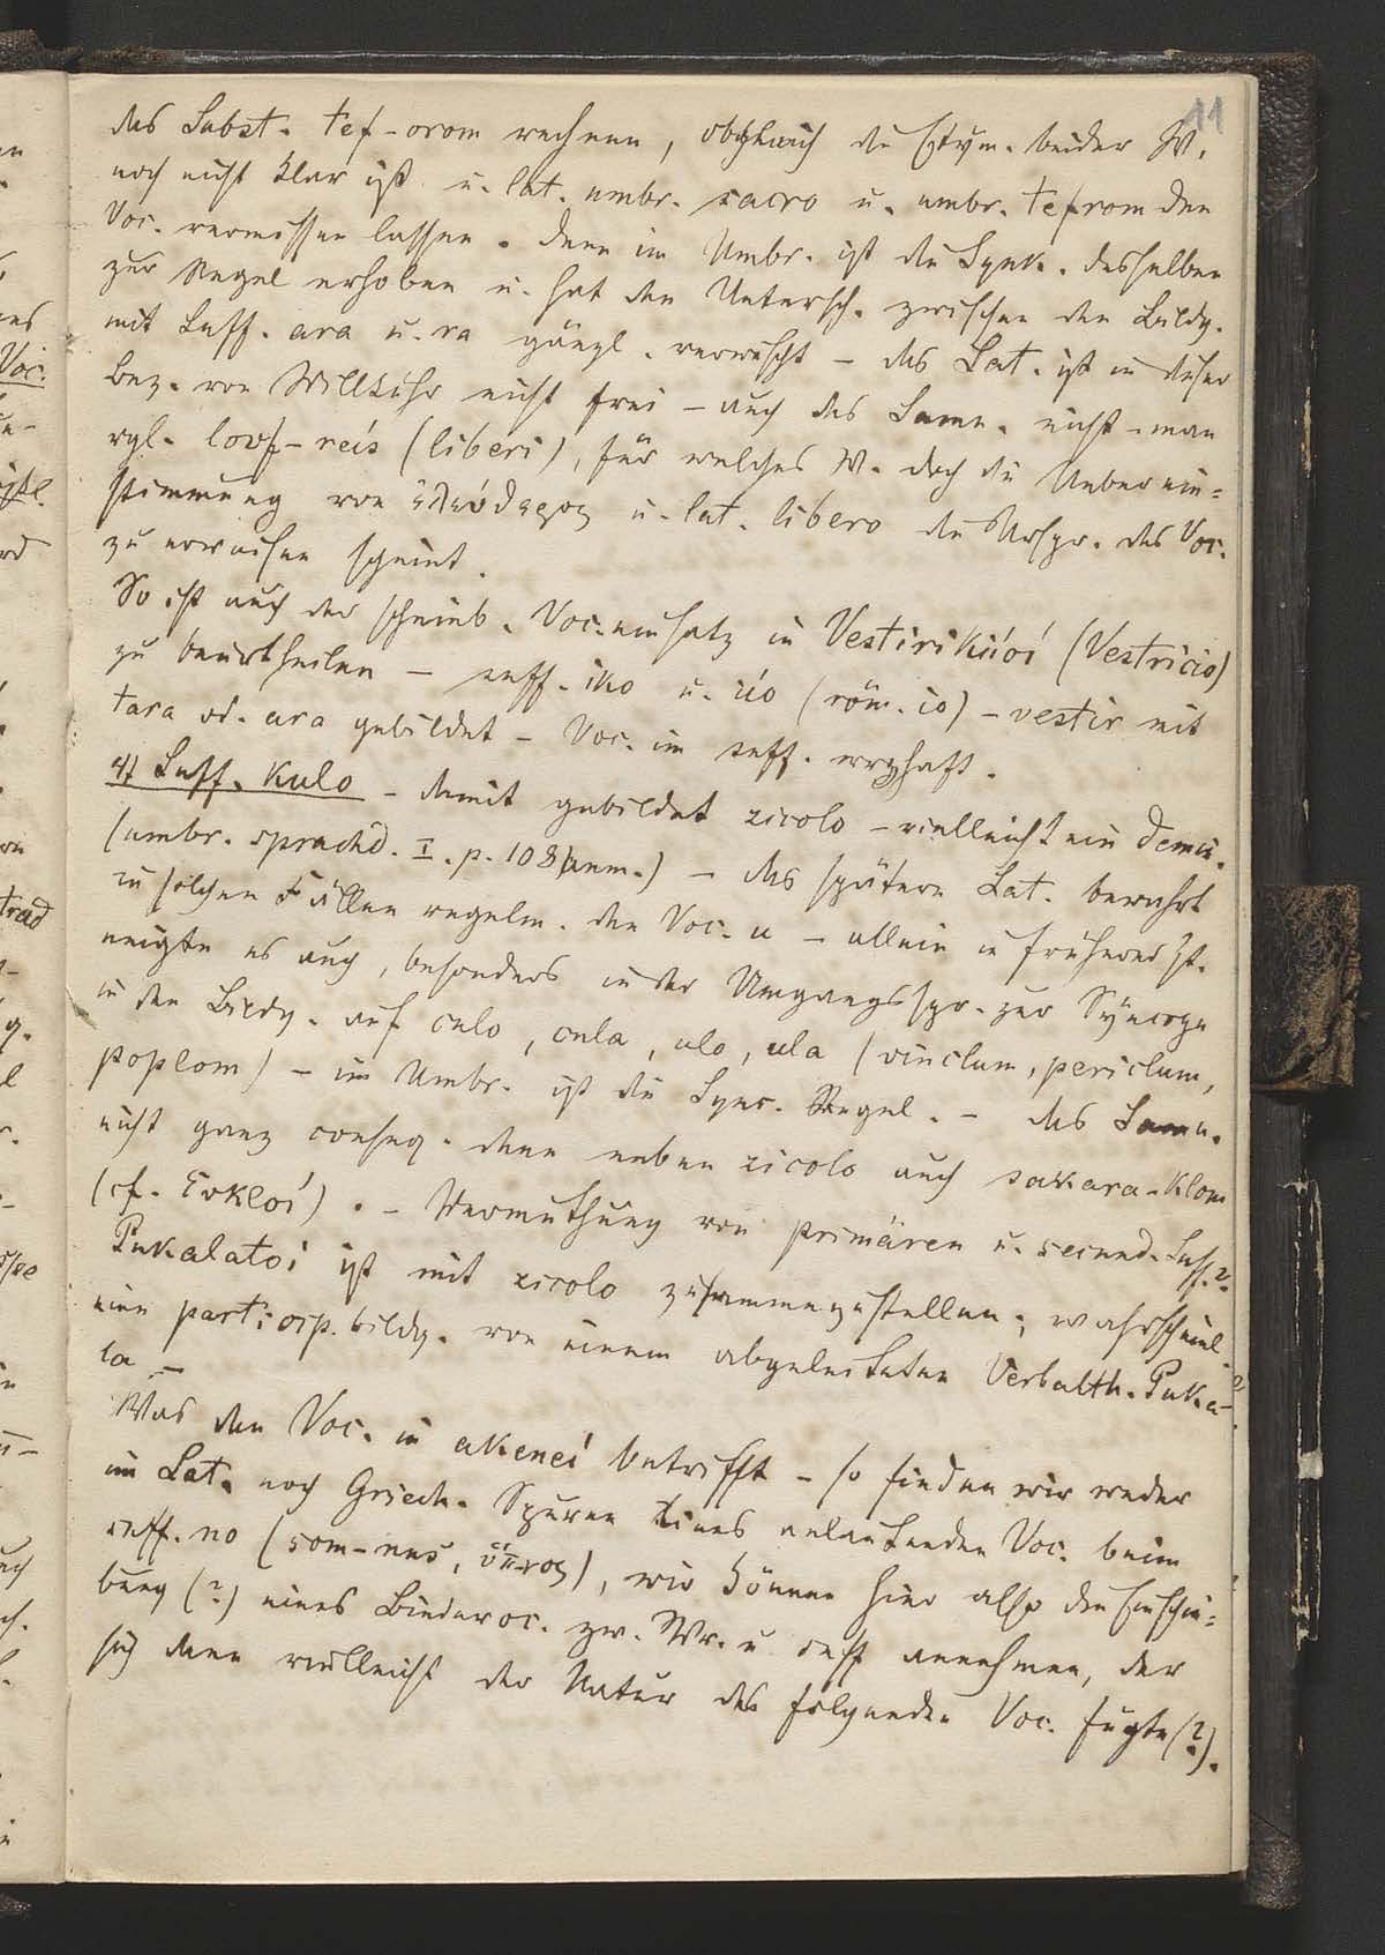 11
das Subst. tef-orom rechnen, obgleich die Etym. beider W.
noch nicht klar ist u. lat. umbr. sacro u. umbr. tefrom den
Voc. vermissen lassen. Denn im Umbr. ist die Synk. desselben
zur Regel erhoben u. hat den Untersch. zwischen den Bildg.
mit Suff. ara u. ra gänzl. verwischt – das Lat. ist in dieser
Bez. von Willkühr nicht frei – auch das Samn. nicht – man
vgl. lovf-reís (liberi), für welches W. doch die Ueberein=
stimmung von ἐλεύθερος u. lat. libero den Urspr. des Voc.
zu erweisen scheint.
So ist auch der scheinb. Voc.einsatz in Vestirikiíoí (Vestricio)
zu beurtheilen – suff. iko u. iío (röm. io) – vestir mit
tara od. ara gebildet – Voc. im suff. wrzhaft.
4) Suff. kulo – damit gebildet zicolo – vielleicht ein Demin.
(umbr. sprachd. I. p. 108 anm.) – das spätere Lat. bewahrt
in solchen Fällen regelm. den Voc. u – allein in früherer Zt.
neigte es auch, besonders in der Umgangsspr. zur Syncope
in den Bildg. auf culo, cula, ulo, ula (vinclum, periclum,
poplom) – im Umbr. ist die Sync. Regel. – das Samn.
nicht ganz conseq. denn neben zicolo auch sakara-klom
(cf. Evkloí). – Vermuthung von primären u. secund. Suff.?
Pukalatoi ist mit zicolo zusammenzustellen; wahrscheinl.
eine particip. bildg. von einem abgeleiteten Verbalth. Puka-
la –
Was den Voc. in akeneí betrifft – so finden wir weder
im Lat. noch Griech. Spuren eines anlautenden Voc. beim
suff. no (som-nus, ὕπ-νος), wir können hier also die Einschie=
bung (?) eines Bindevoc. zw. Wr. u suff annehmen, der
sich dann vielleicht der Natur des folgenden Voc. fügte (?).